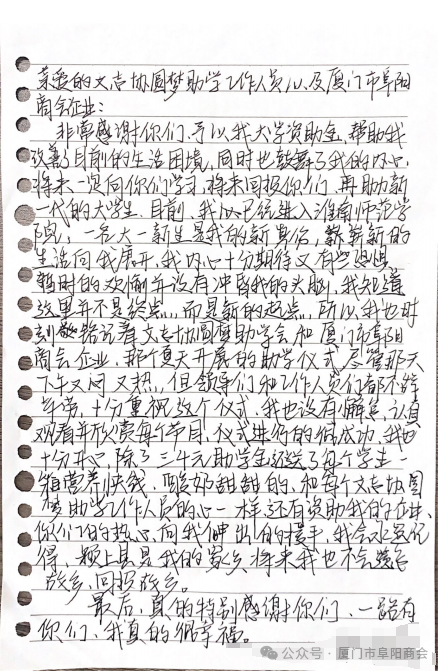 亲爱的文志协圆梦助学工作人员以及厦门市阜阳
商会企业：
非常感谢你们予以我大学资助金，帮助我
改善了目前的生活困境，同时也鼓舞了我的内心，
将来一定向你们学习，将来回报你们，再助力新
一代的大学生。目前，我已经进入淮南师范学
院，一名大一新生是我的新身份，崭新的
生活向我展开，我内心十分期待又有些恐惧
暂时的欢愉并没有冲昏我的头脑，我知道
这里并不是终点，而是新的起点，所以我也时
刻惦记着文志协圆梦助学会和厦门市阜阳
商会企业，那个夏天开展的助学仪式，尽管那天
下午又闷又热，但领导们和工作人员们都不辞
辛劳，十分重视这个仪式，我也没有懈怠，认真
观看并欣赏每个节目，仪式进行的很成功，我也
十分开心，除了三千元助学金还送了每个学生一
箱营养快线，酸奶甜甜的，和每个文志协圆
梦助学工作人员的心一样还有资助我的企业，
你们的热心向我伸出的援手，我会永远记
得，颍上县是我的家乡，将来我也不会忘
故乡，回报故乡。
最后，真的特别感谢你们，一路有
你们，我真的很幸福。
公众号·厦门市阜阳商会